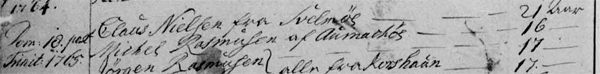 1764.
Claus Nielsen fra Svelmøe — 21 Aar
Dom: 18. post Michel Rasmusen af Aumachs — 16
Trinit: 1765. Rasmusen — 17
Jörgen Rasmusen alle fra Korshaun — 17.—